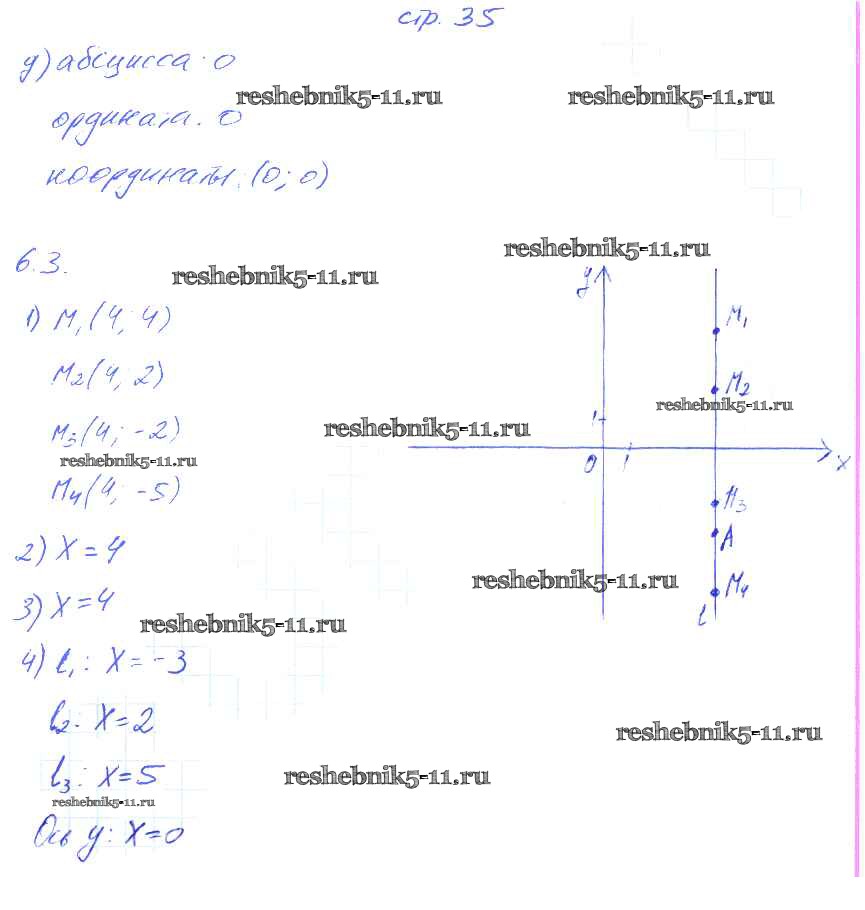 стр. 35
д) абсцисса: 0
reshebnik5-11.ru reshebnik5-11.ru
ордината: 0
координаты: (0; 0)
6.3.
reshebnik5-11.ru
reshebnik5-11.ru
y
1) M1(4; 4)
M1
M2(4; 2)
M2
reshebnik5-11.ru
1
M3(4; -2)
reshebnik5-11.ru
reshebnik5-11.ru
0 1 x
M4(4; -5)
M3
2) x = 4
A
reshebnik5-11.ru
M4
3) x = 4
l
reshebnik5-11.ru
4) l1: x = -3
l2: x = 2
reshebnik5-11.ru
l3: x = 5
reshebnik5-11.ru
reshebnik5-11.ru
Ось y: x = 0